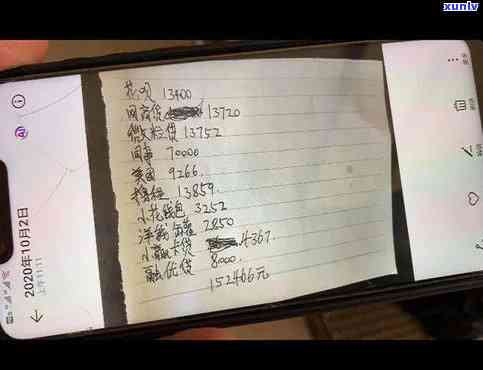 xunlv
花呗 13400
网商贷 13720
微粒贷 13752
网商 70000
美团 9266.
携程 13859
小花钱包 3252
洋钱罐 2850
小赢卡贷 4367.
融优贷 8000.
152466元
2020年10月2日
上午11:11